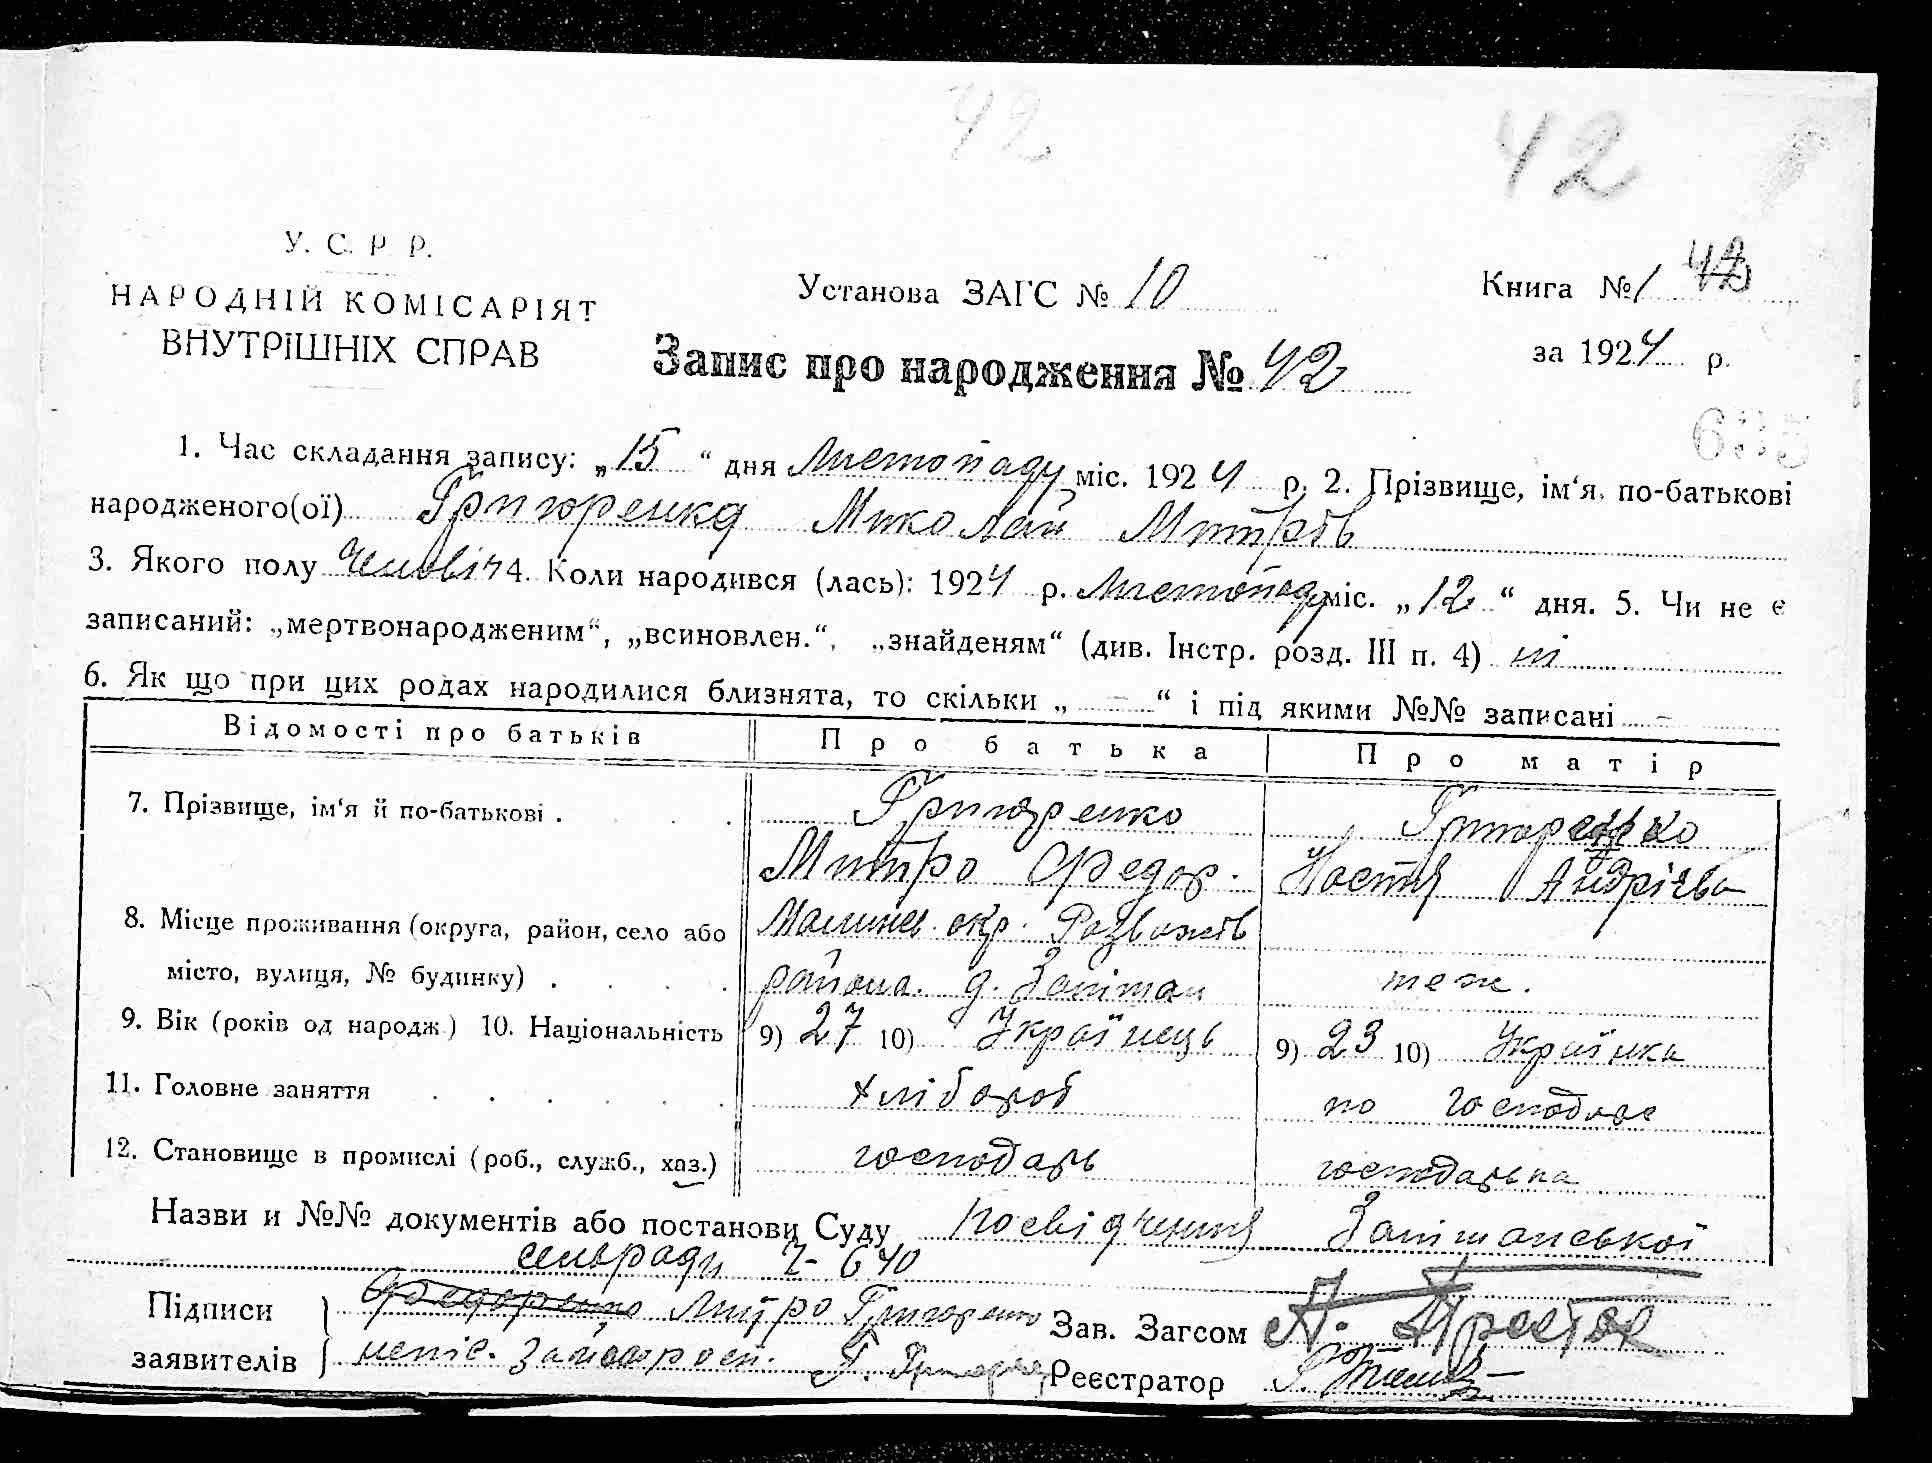 42
42
У. С. Р. Р.
НАРОДНІЙ КОМІСАРІЯТ
ВНУТРІШНІХ СПРАВ
Установа ЗАГС № 10
Книга № 1 42
за 1924 р.
Запис про народження № 42
635
1. Час складання запису: „15“ дня Листопаду міс. 1924 р. 2. Прізвище, ім‘я, по-батькові
народженого(ої) Григоренко Миколай Митрів
3. Якого полу Чоловіч 4. Коли народився (лась): 1924 р. Листопаду міс. „12“ дня. 5. Чи не є
записаний: „мертвонародженим“, „всиновлен.“, „знайденям“ (див. Інстр. розд. III п. 4) ні
6. Як що при цих родах народилися близнята, то скільки „ – “ і під якими №№ записані –
Відомості про батьків Про батька Про матір
7. Прізвище, ім‘я й по-батькові . Григоренко Григоренко
Митро Федор. Настя Андрієва
8. Місце проживання (округа, район, село або Малинсь. окр. Розважів
місто, вулиця, № будинку) . района. д. Запіман теж.
9. Вік (років од народж.) 10. Національність 9) 27 10) Українець 9) 23 10) Українка
11. Головне заняття хлібороб по господар
12. Становище в промислі (роб., служб., хаз.) господарь господарька
Назви и №№ документів або постанови Суду Посвідчення
сельради 640
Підписи Федоренко Митро Григоренко Зав. Загсом
заявителів непіс. Г. Реєстратор